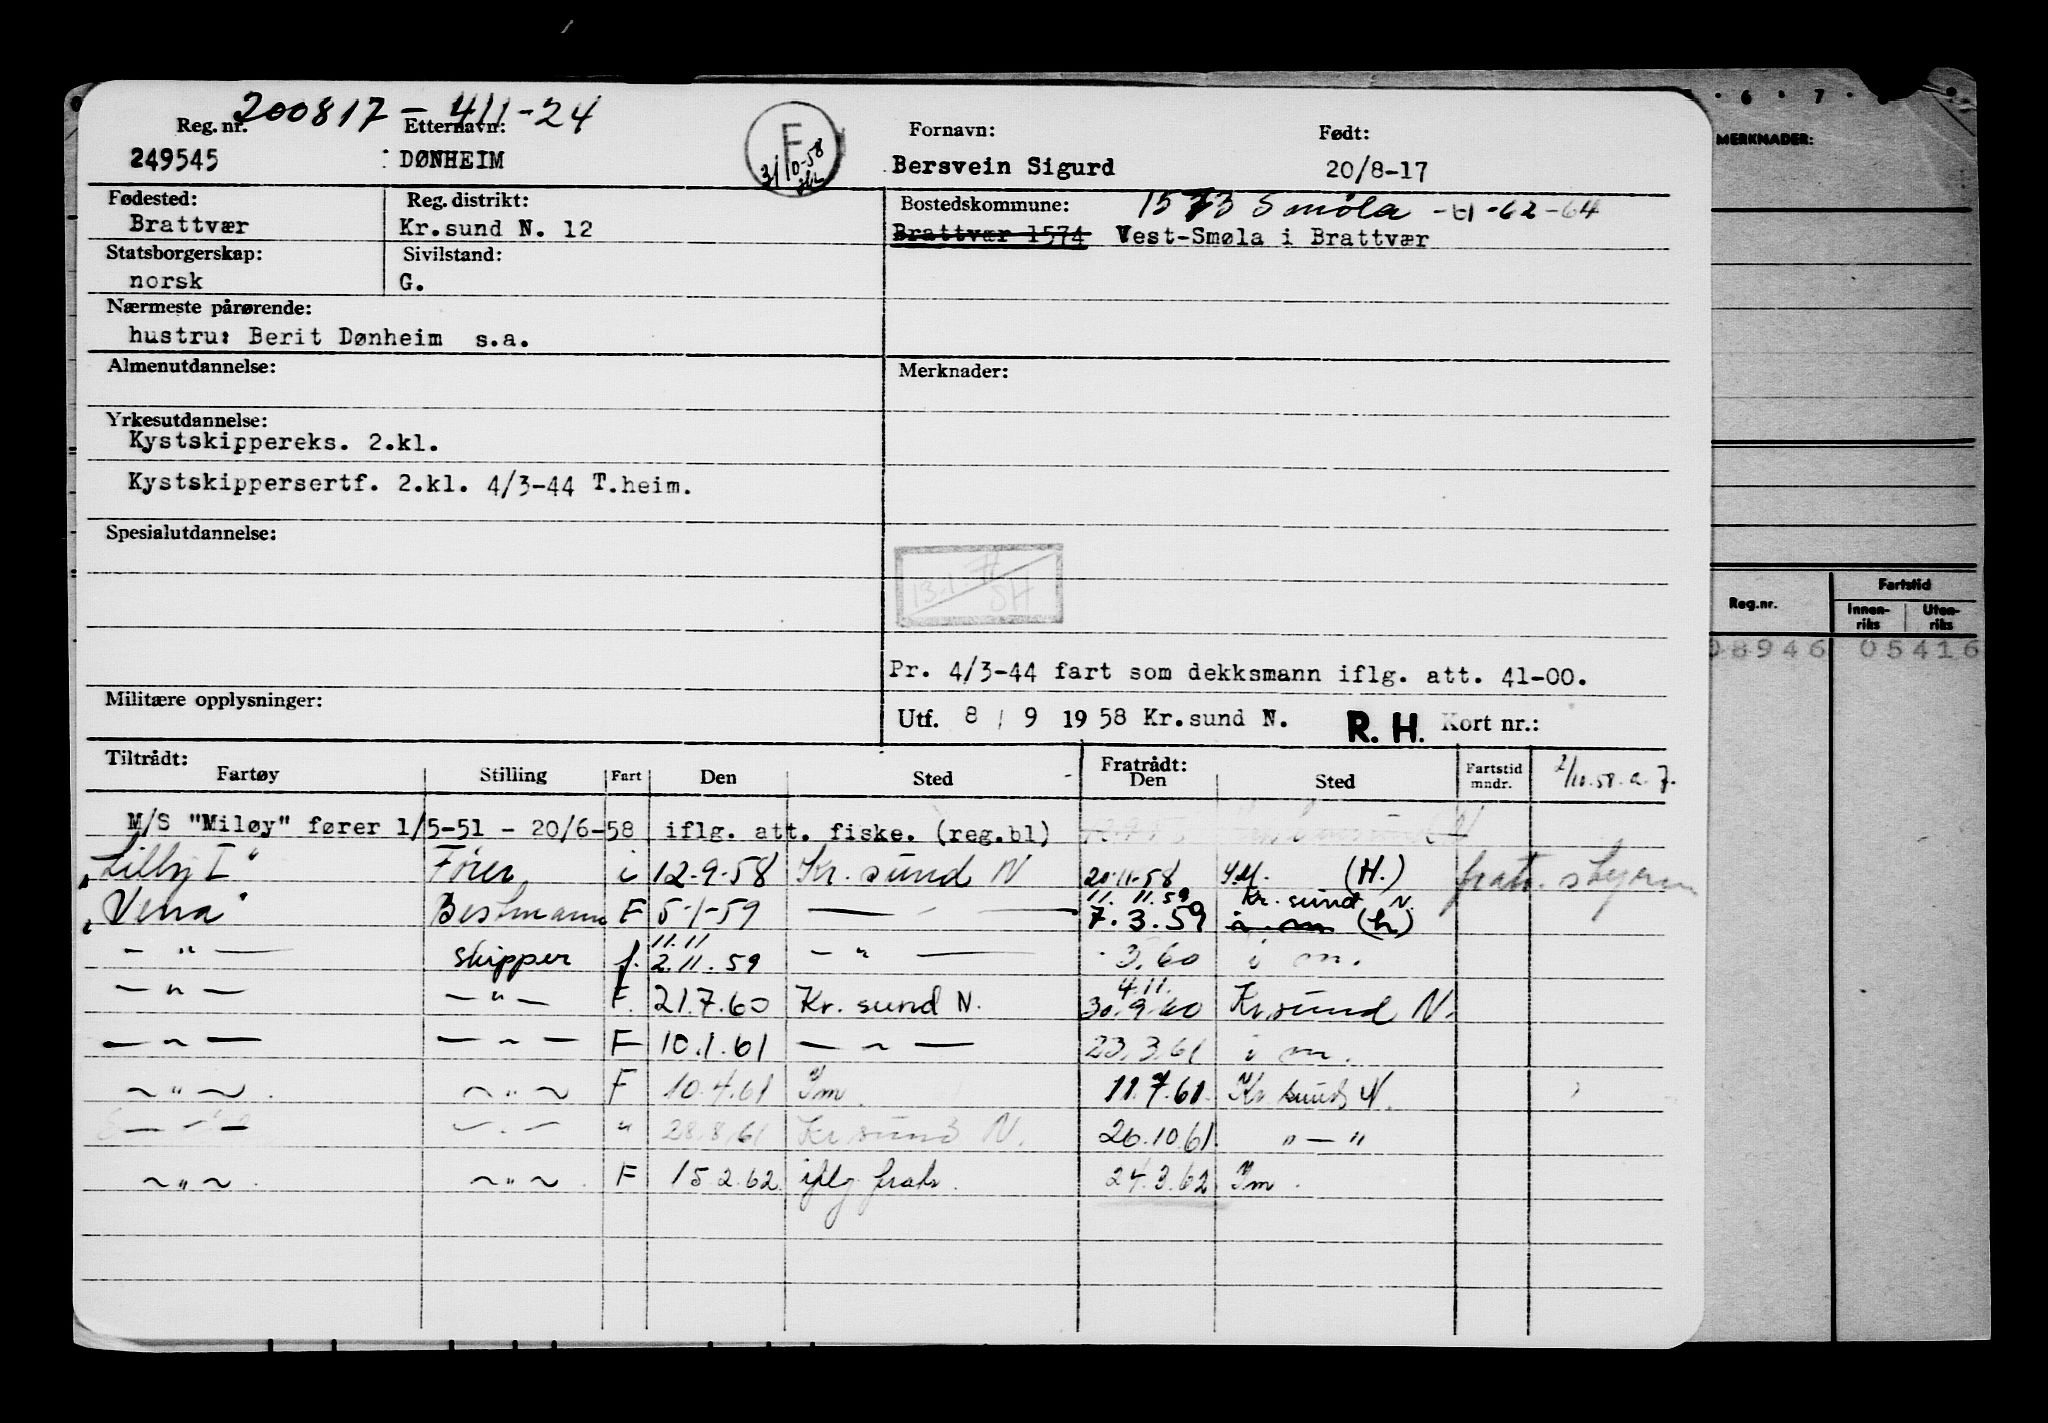 200817-411-24
Reg. nr. Etternavn: Fornavn: Født:
249545 DØNHEIM F 3/10-58 Bersvein Sigurd 20/8-17
Fødested: Reg. distrikt: Bostedskommune: 1573 Smøla -61-62-64
Brattvær Kr.sund N. 12 Brattvær 1574 Vest-Smøla i Brattvær
Statsborgerskap: Sivilstand:
norsk G.
Nærmeste pårørende:
hustru: Berit Dønheim s.a.
Almenutdannelse: Merknader:
Yrkesutdannelse:
Kystskippereks. 2.kl.
Kystskippersertf. 2.kl. 4/3-44 T.heim.
Spesialutdannelse:
Pr. 4/3-44 fart som dekksmann iflg. att. 41-00.
Militære opplysninger: Utf. 8 / 9 1958 Kr.sund N. R. H. Kort nr.:
Tiltrådt: Fratrådt:
Fartøy Stilling Fart Den Sted Den Sted Fartstid mndr. 2/10.58. a. F.
M/S "Miløy" fører 1/5-51 - 20/6-58 iflg. att. fiske. (reg.bl)
"Lilly I" Fører i 12-9-58 Kr. sund N 20-11-58 I.M. (H.) fratr. styrm
"Vena" Bestmann F 5-1-59 — " — 11. 11.59 7.3.59 Kr. sund N. i m (h)
— " — skipper f. 11.11 2.11.59 — " — 3.60 i m.
— " — — " — F. 21.7.60 Kr. sund N. 4.11. 30.9.60 Kr.sund N.
— " — — " — F 10.1.61 — " — 23.3.61 i m.
— " — — " — F 10.4.61 Im. 11.7.61. Kr sund N.
— " — — " — " 28.8.61 Kr.sund N. 26.10.61 " — "
— " — — " — F 15.2.62 iflg fratr. 24.3.62 Im.
6 · 7 ·
MERKNADER:
Reg.nr. Fartstid
Innen-riks Uten-riks
08946 05416